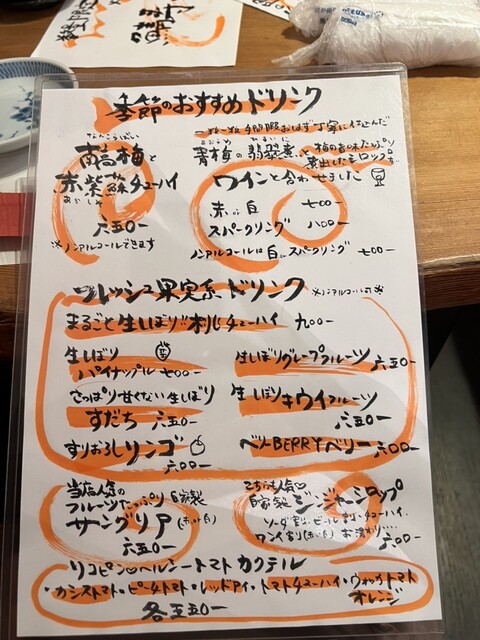 季節のおすすめドリンク
なんこうばい
南高梅と
赤紫蘇チューハイ
あかじそ
六五〇-
※ノンアルコールできます
一粒一粒手間暇おしまず丁寧に仕込んだ
青梅の翡翠煮と梅の旨味たっぷり
煮出したシロップを
ワインと合わせました
赤or白 七〇〇-
スパークリング 八〇〇-
ノンアルコールは白orスパークリング 七〇〇-
フレッシュ果実系ドリンク ※ノンアルコール可※
まるごと生しぼりオレンジチューハイ 九〇〇-
生しぼり
パイナップル 七〇〇-
生しぼりグレープフルーツ 六五〇-
さっぱり甘くない生しぼり
すだち 六五〇-
生しぼりキウイフルーツ
六五〇-
すりおろしリンゴ
六〇〇-
ベリーBERRYベリー 六〇〇-
当店人気の
フルーツたっぷり自家製
サングリア(赤or白)
六五〇-
こちらも人気♡
自家製ジンジャーシロップ
ソーダ割り・ビール割り・チューハイ・
ワイン割り(赤or白) お湯わり‥‥
六〇〇-
リコピン♡ヘルシートマトカクテル
・カシストマト・ピーチトマト・レッドアイ・トマトチューハイ・ウォッカトマト
オレンジ
各五五〇-